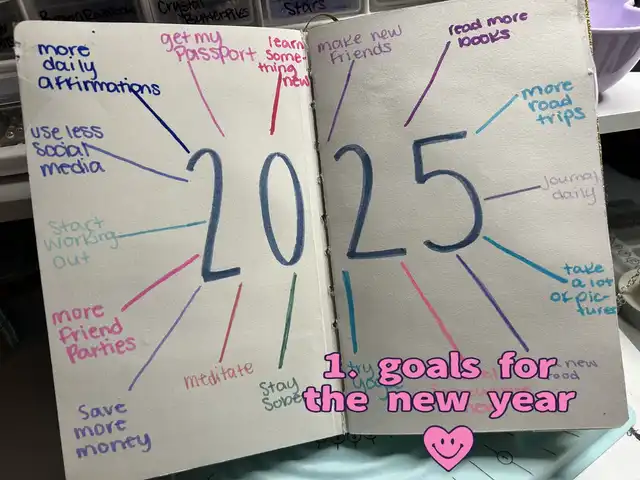 Crystal
Butterflies
Stars
more
daily
affirmations
get my
Passport
learn
some-
thing
new
make new
friends
read more
books
more
road
trips
use less
social
media
journal
daily
Start
working
out
take
a lot
of pic-
tures
more
friend
Parties
meditate
Stay
save
more
money
2025
try
new
1. goals for
the new year